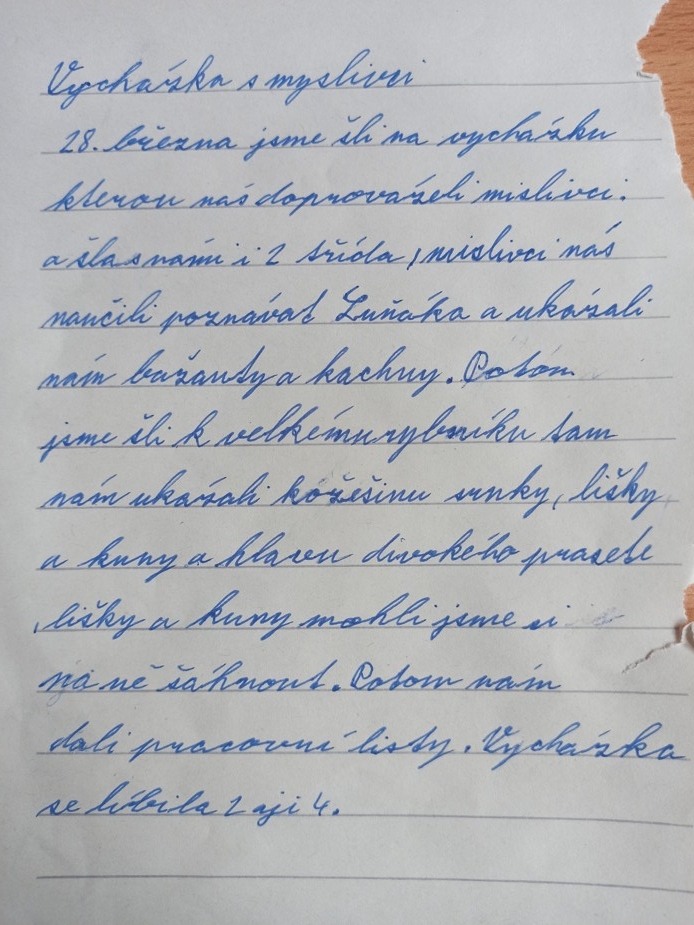 Vycházka s myslivci
28. března jsme šli na vycházku
kterou nás doprovázeli mislivci.
a šla s námi i 2 třída, mislivci nás
naučili poznávat Luňáka a ukázali
nám bažanty a kachny. Potom
jsme šli k velkému rybníku tam
nám ukázali kožešinu srnky, lišky
a kuny a hlavu divokého prasete
,lišky a kuny mohli jsme si
na ně šáhnout. Potom nám
dali pracovní listy. Vycházka
se líbila 2 aji 4.